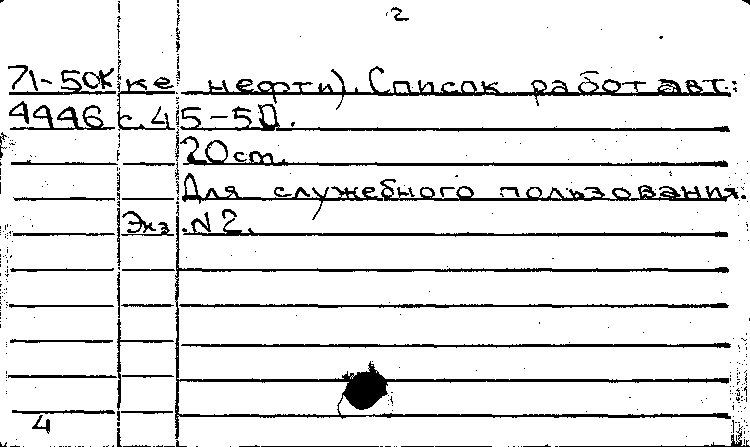 2
71-50к ке нефти). Список работ авт.:
4446 с. 45-50.
20 cm.
Для служебного пользования.
Экз. N 2.
4